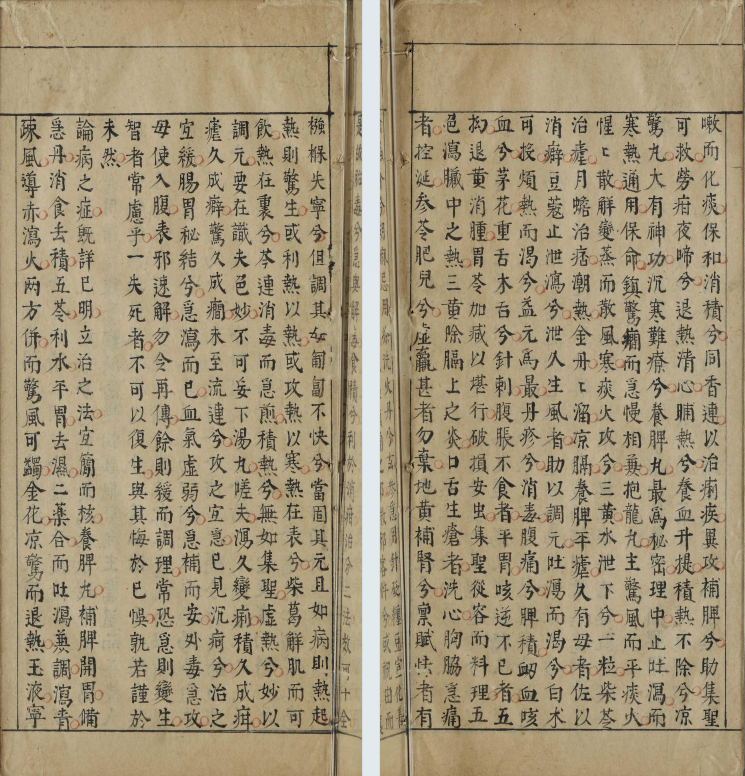 襁褓失寧兮但調其如匍匐不快兮當固其元且如病則熱起
熱則驚生或利熱以熱或攻熱以寒熱在表兮柴葛解肌而可
飲熱在裏兮苓連消毒而急煎積熱兮無如集聖虛熱兮妙以
調元要在識夫色妙不可妥下湯丸嗟夫瀉久變痢積久成疳
瘧久成癖驚久成癎未至流連兮攻之宜急已見沉疴兮治之
宜緩腸胃秘結兮急瀉而已血氣虛弱兮急補而安外毒急攻
毋使入腹表邪速解勿令再傳餘則緩而調理常恐急則變生
智者常慮乎一失死者不可以復生與其悔於已悞孰若謹於
未然
論病之症既詳已明立治之法宜簡而核養脾丸補脾開胃備
急丹消食去積五苓利水平胃去濕二藥合而吐瀉兼調瀉青
疎風導赤瀉火兩方併而驚風可蠲金花凉驚而退熱玉液寧
嗽而化痰保和消積兮同香連以治痢疾異攻補脾兮助集聖
可救勞疳夜啼兮退熱清心脯熱兮養血升提積熱不除兮凉
驚丸大有神功沉寒難療兮養脾丸最爲秘密理中止吐瀉而
寒熱通用保命鎮驚癎而急慢相兼抱龍丸主驚風而平痰火
惺惺散解變蒸而散風寒痰火攻兮三黃水泄下兮一粒柴苓
治瘧月蟾治疳潮熱金丹丹溜凉膈養脾平瘧久有母者佐以
消癖豆蔻止泄瀉兮泄久生風者助以調元吐瀉而渴兮白术
可投煩熱而渴兮益元爲最丹疹兮消毒腹痛兮脾積衂血咳
血兮茅花重舌木舌兮針刺腹脹不食者平胃咳逆不已者五
拘退黃消腫胃苓加减以堪行破損安虫集聖從容而料理五
色瀉臟中之熱三黃除膈上之炎口舌生瘡者洗心胸脇急痛
者控涎參苓肥兒兮虛羸甚者勿棄地黃補腎兮禀賦怯者有